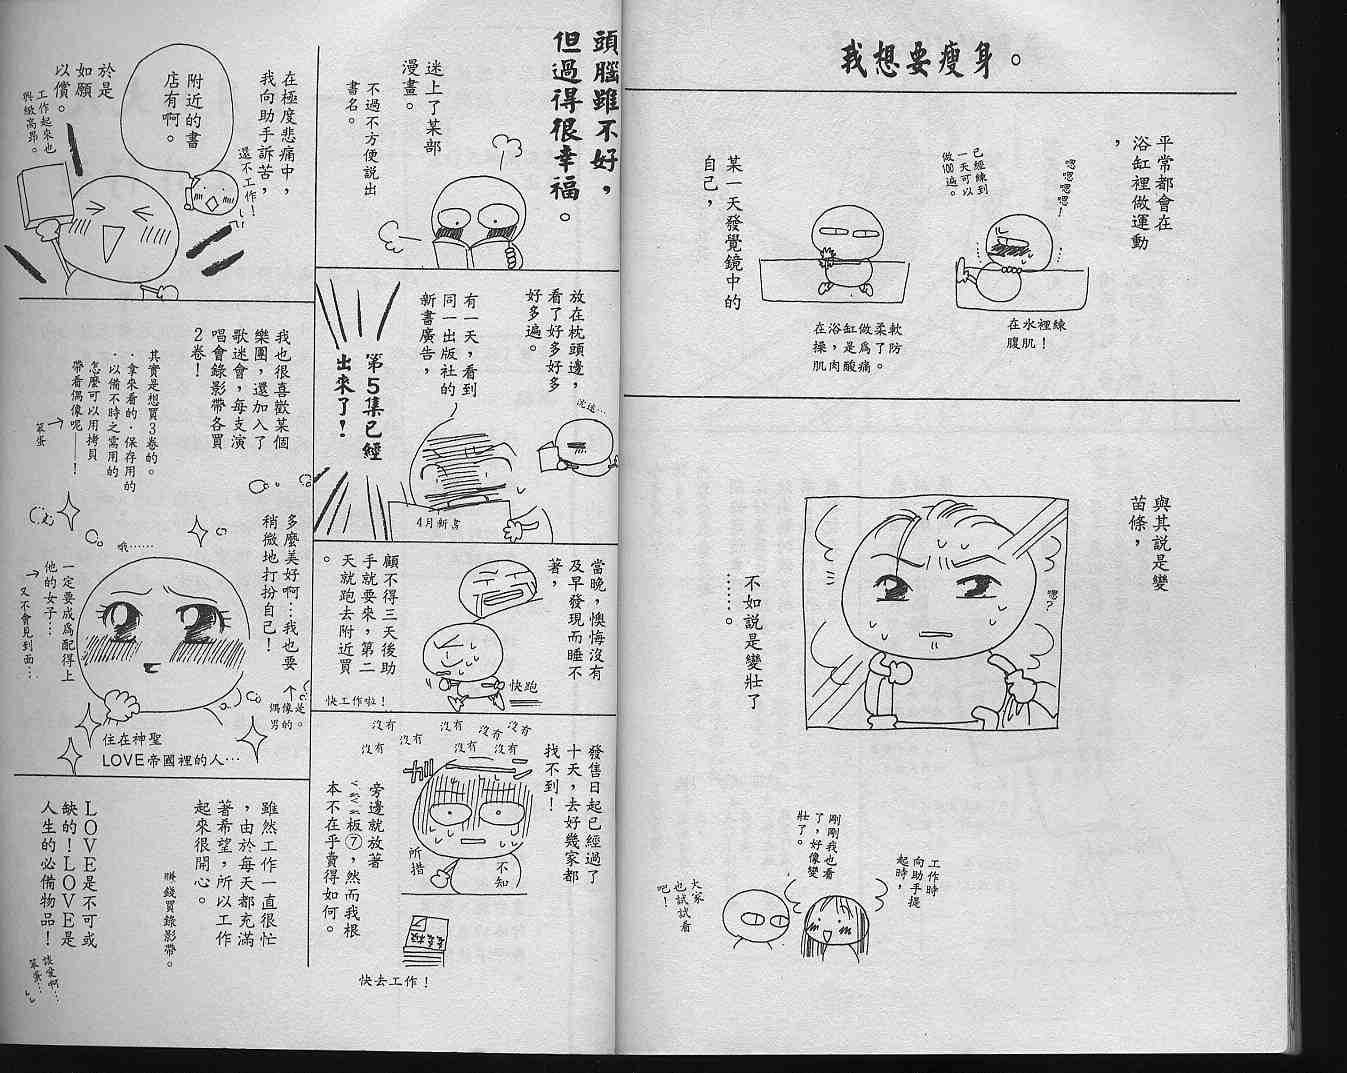 我想要瘦身。
平常都會在
浴缸裡做運動
，
嗯嗯嗯嗯！
已經練到
一天可以
做個遍。
在水裡練
腹肌！
在浴缸做柔軟
操，是為了防
肌肉酸痛。
某一天發覺鏡中的
自己，
與其說是變
苗條，
嗯？
不如說是變壯了
……。
工作時
向助手提
起時，
剛剛我也看
了，好像變
壯了。
大家
也試試看
吧！
頭腦雖不好，
但過得很幸福。
迷上了某部
漫畫。
不過不方便說出
書名。
放在枕頭邊，
看了好多好多
好多遍。
沈迷…
有一天，看到
同一出版社的
新書廣告，
4月新書
第5集已經
出來了！
當晚，懊悔沒有
及早發現而睡不
著，
顧不得三天後助
手就要來，第二
天就跑去附近買
。
快跑
快工作啦！
發售日起已經過了
十天，去好幾家都
找不到！
沒有
沒有
沒有
沒有
沒有
沒有
沒有
沒有
不知
所措
旁邊就放著
板⑦，然而我根
本不在乎賣得如何。
快去工作！
在極度悲痛中，
我向助手訴苦，
還不工作！
附近的書
店有啊。
於是
如願
以償。
工作起來也
興緻高昂。
我也很喜歡某個
樂團，還加入了
歌迷會，每支演
唱會錄影帶各買
2卷！
其實是想買3卷的。
．拿來看的．保存用的
．以備不時之需用的
怎麼可以用拷貝
帶看偶像呢——！
笨蛋
多麼美好啊…我也要
稍微地打扮自己！
哦……
一定要成為配得上
他的女子…
又不會見到面…
偶像是
男的。
住在神聖
LOVE帝國裡的人…
雖然工作一直很忙
，由於每天都充滿
著希望，所以工作
起來很開心。
賺錢買錄影帶。
LOVE是不可或
缺的！LOVE是
人生的必備物品！
談愛啊…
笨蛋…